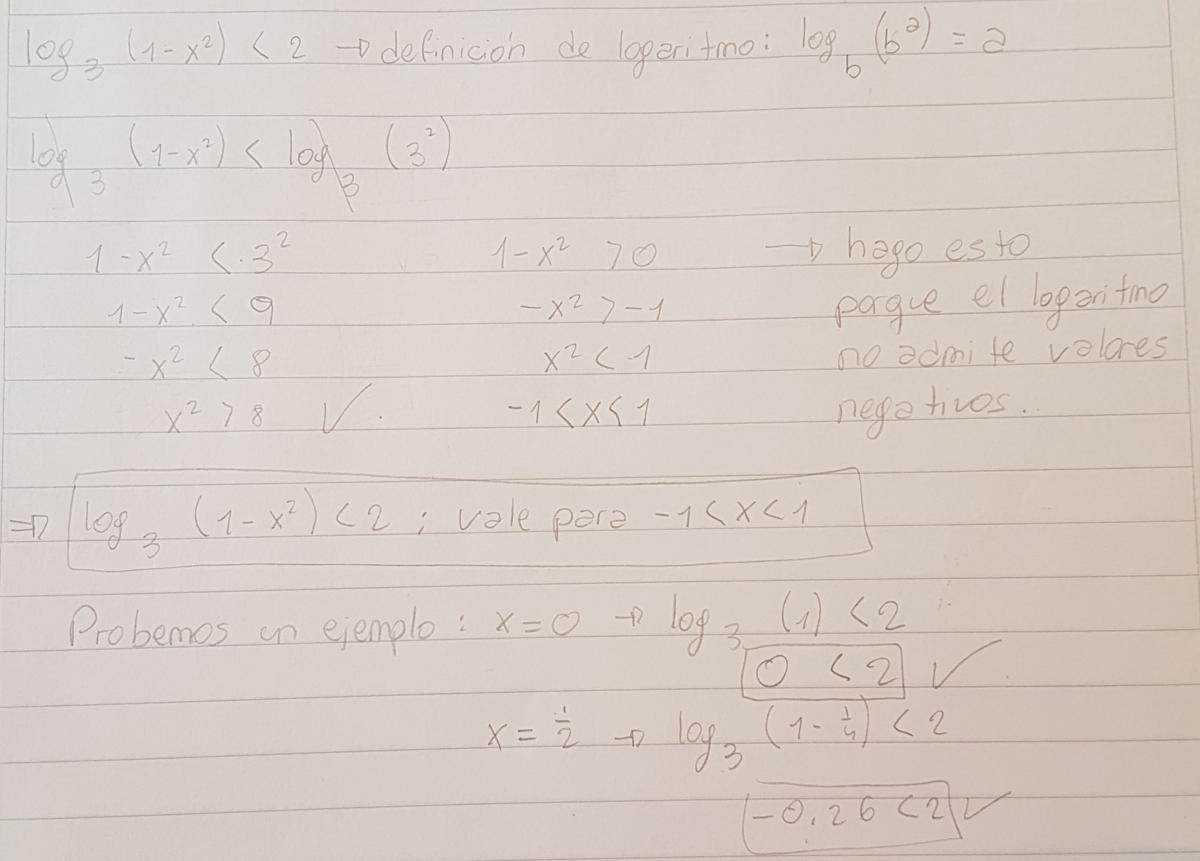 log₃ (1-x²) < 2 → definición de logaritmo: log_b (b^a) = a
log₃ (1-x²) < log₃ (3²)
1-x² < 3² 1-x² > 0 → hago esto
1-x² < 9 -x² > -1 porque el logaritmo
-x² < 8 x² < 1 no admite valores
x² > 8 ✓. -1 < x < 1 negativos..
⇒ log₃ (1-x²) < 2 ; vale para -1 < x < 1
Probemos un ejemplo: x=0 → log₃ (1) < 2
0 < 2 ✓
x = 1/2 → log₃ (1-1/4) < 2
-0.26 < 2 ✓